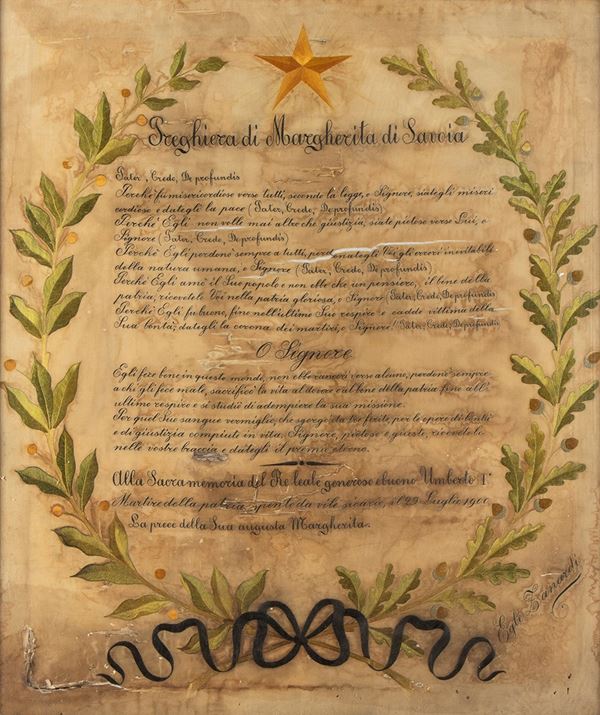 Preghiera di Margherita di Savoia
Pater, Credo, De profundis
Perché fu misericordioso verso tutti, secondo la legge, o Signore, siategli miseri
cordioso e dategli la pace (Pater, Credo, De profundis)
Perché Egli non volle mai altro che giustizia, siate pietoso verso Lui, o
Signore (Pater, Credo, De profundis)
Perché Egli perdonò sempre a tutti, perdonategli Voi gli errori inevitabili
della natura umana, o Signore (Pater, Credo, De profundis)
Perché Egli amò il Suo popolo e non ebbe che un pensiero, il bene della
patria, ricevetelo Voi nella patria gloriosa, o Signore (Pater, Credo, De profundis
Perché Egli fu buono, fino nell'ultimo Suo respiro e cadde vittima della
Sua bontà, dategli la corona dei martiri, o Signore! (Pater, Credo, De profundis
O Signore
Egli fece bene in questo mondo, non ebbe rancori verso alcuno, perdonò sempre
a chi gli fece male, sacrificò la vita al dovere e al bene della patria fino all'
ultimo respiro e si studiò di adempiere la sua missione.
Per quel Suo sangue vermiglio, che sgorgò da tre ferite, per le opere di bontà
e di giustizia compiute in vita, Signore, pietoso e giusto, ricevetelo
nelle vostre braccia e dategli il premio eterno.
Alla Sacra memoria del Re leale generoso e buono Umberto I°
Martire della patria spento da vile sicario, il 29 Luglio 1900
La prece della Sua augusta Margherita.
Egli Zanardi